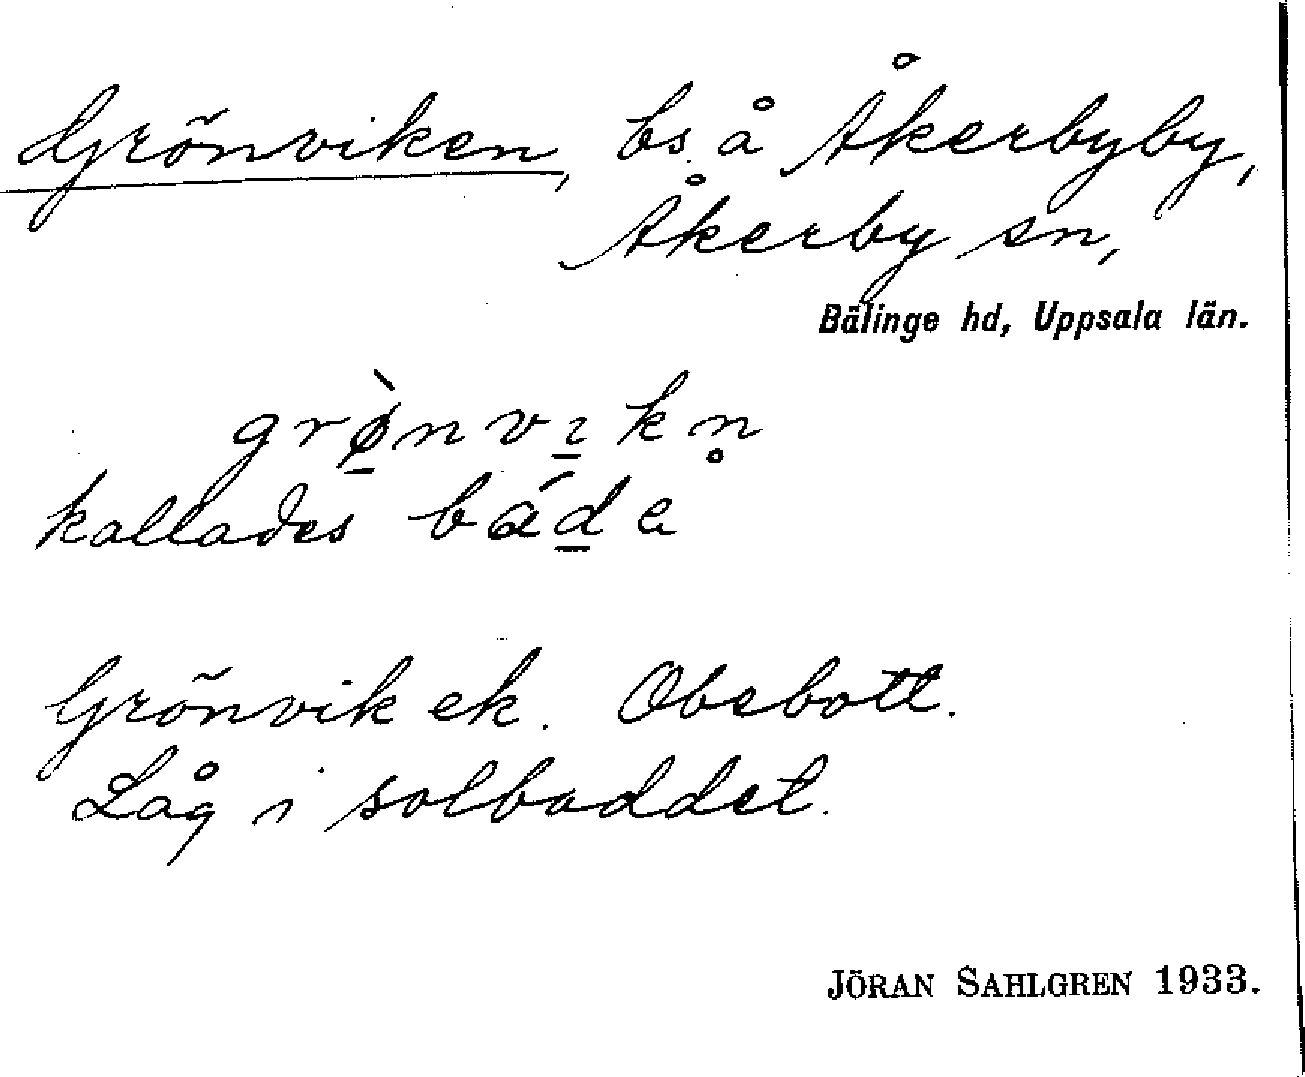 Grönviken, bs. å Åkerbyby,
Åkerby sn,
Bälinge hd, Uppsala län.
grø̀nvıkn̥
kallades báda
Grönvik ek. Obebott.
Låg i solbaddet.
JÖRAN SAHLGREN 1933.